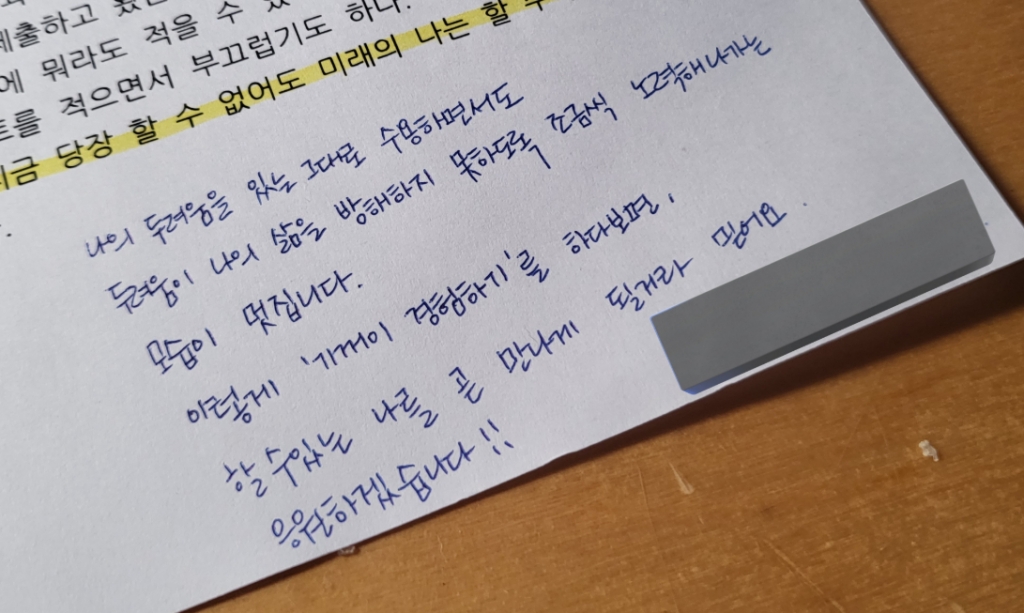 제출하고
에 뭐라도 적을 수 있
트를 적으면서 부끄럽기도 하다.
지금 당장 할 수 없어도 미래의 나는 할 수
나의 두려움을 있는 그대로 수용하면서도
두려움이 나의 삶을 방해하지 못하도록 조금씩 노력해나가는
모습이 멋집니다.
이렇게 '기꺼이 경험하기'를 하다보면,
할 수 있는 나를 곧 만나게 될거라 믿어요.
응원하겠습니다!!